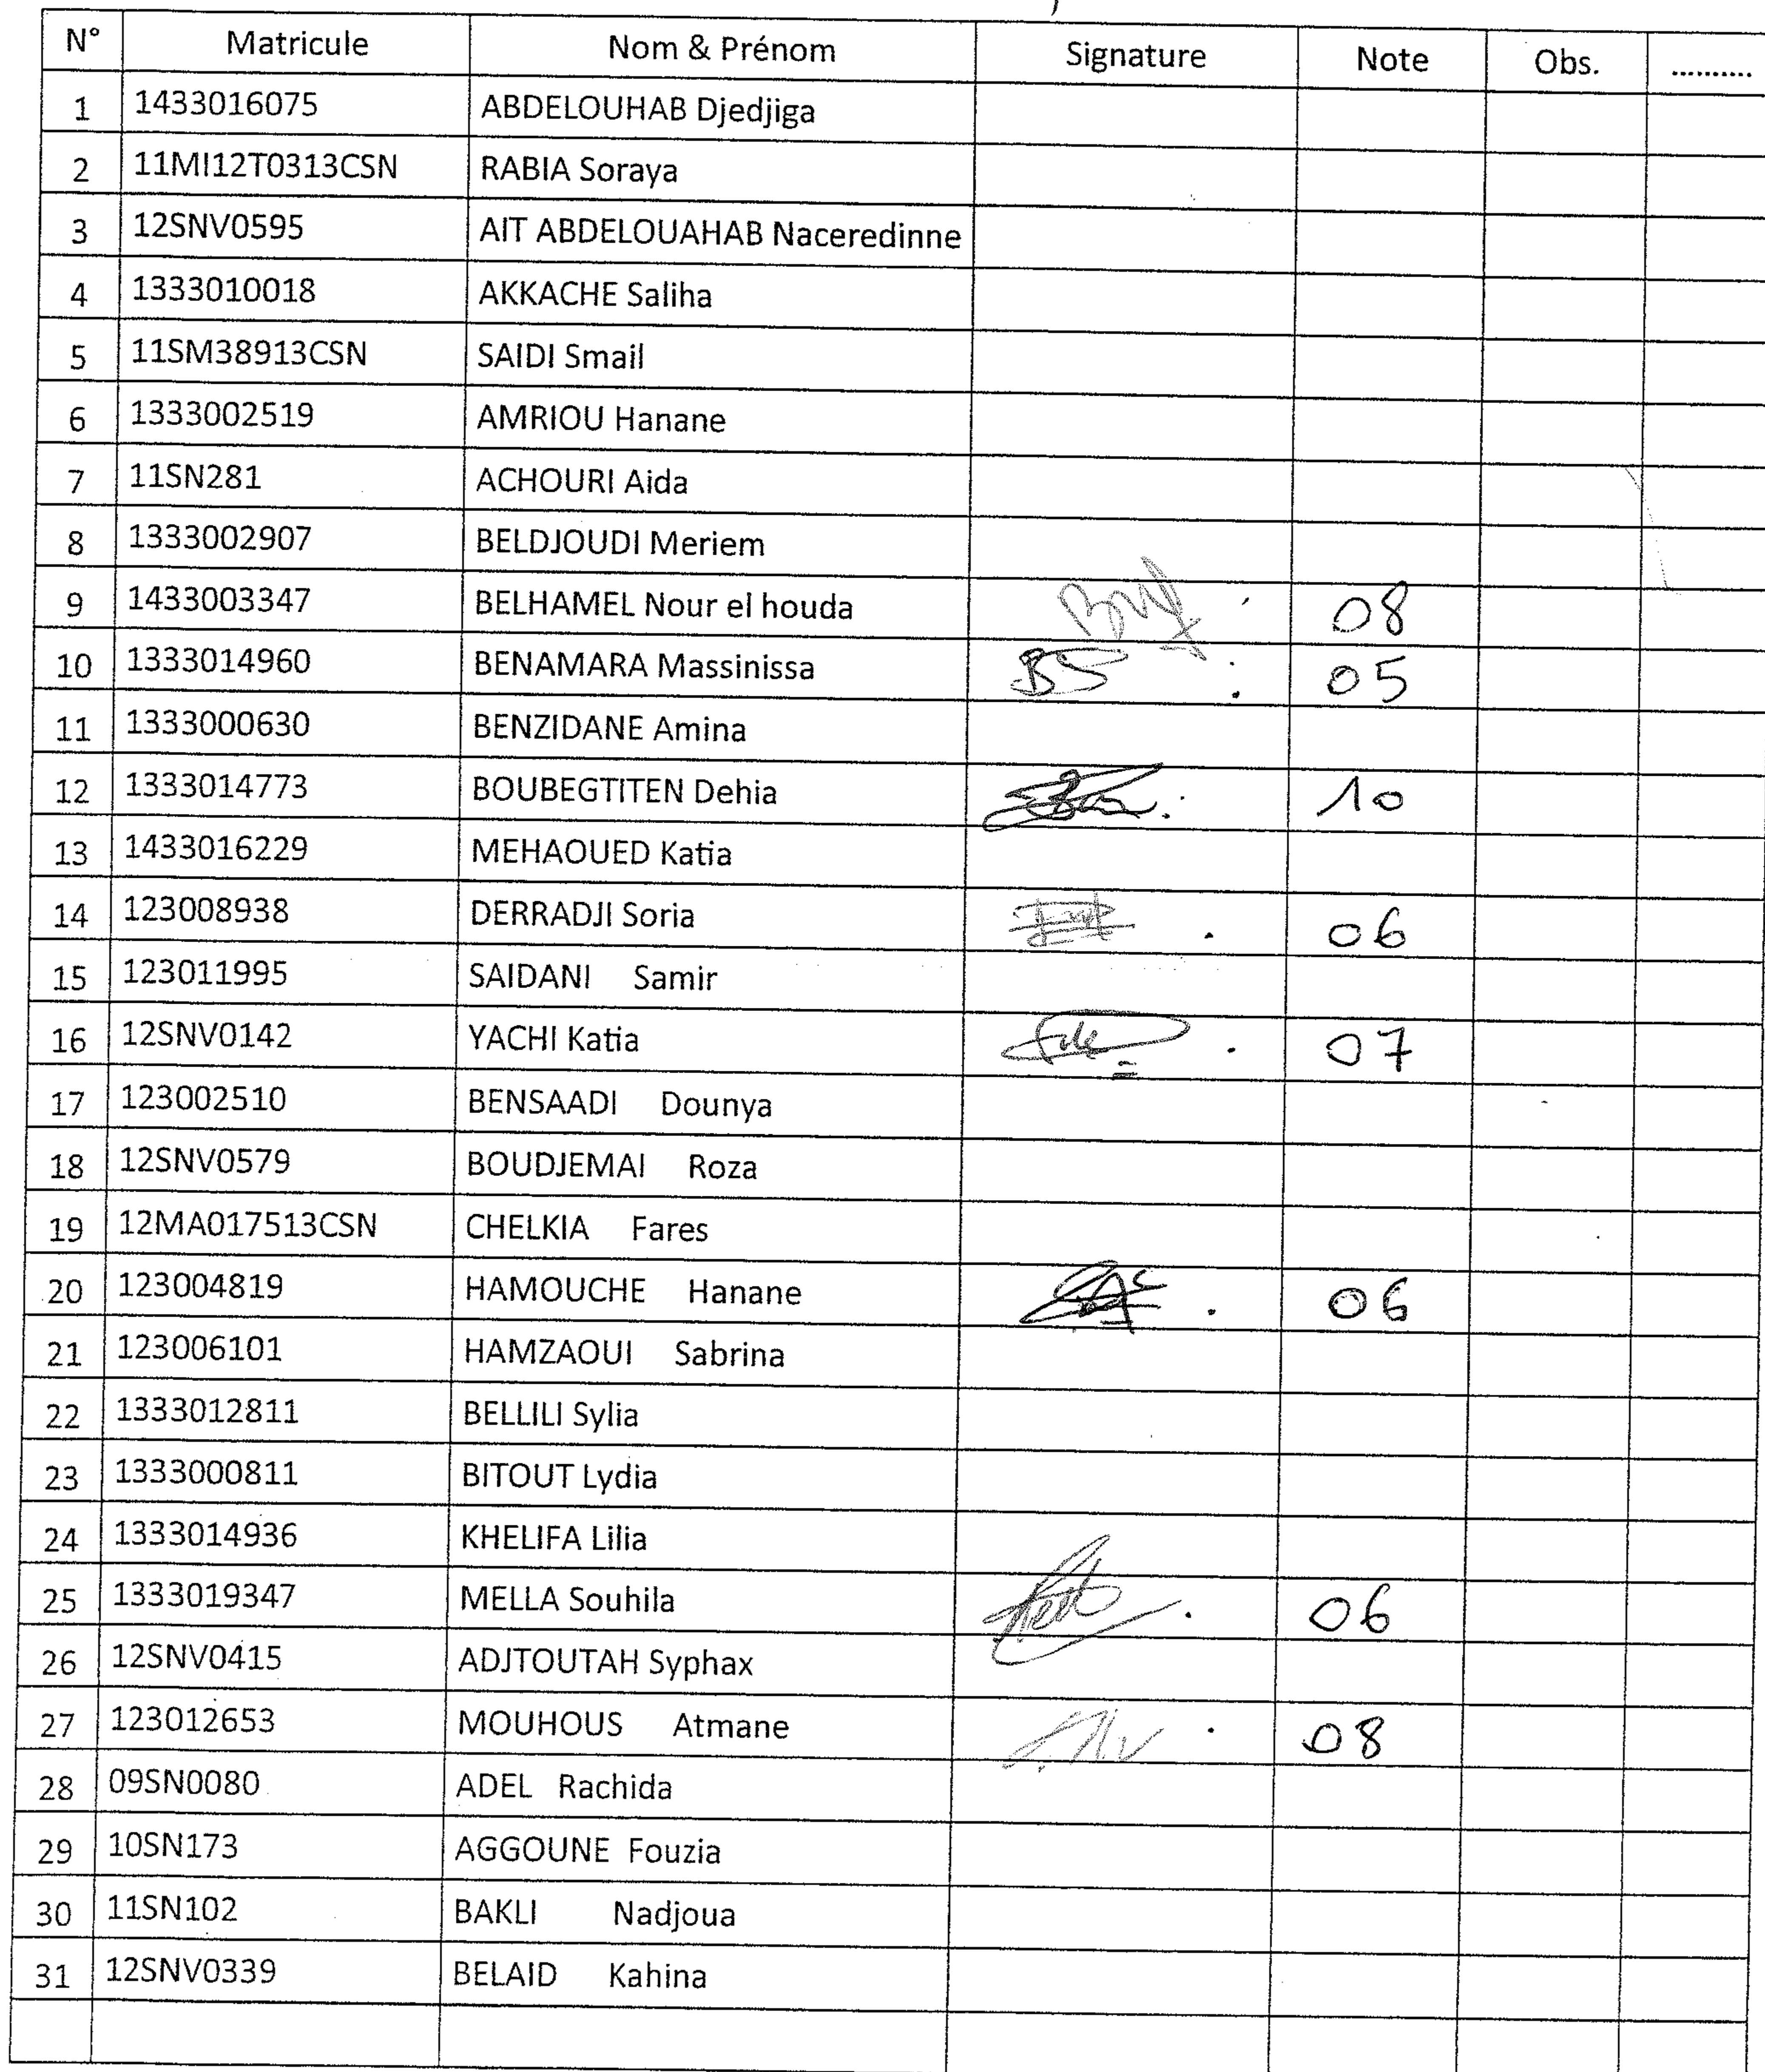 N° Matricule Nom & Prénom Signature Note Obs. ..........
1 1433016075 ABDELOUHAB Djedjiga
2 11MI12T0313CSN RABIA Soraya
3 12SNV0595 AIT ABDELOUAHAB Naceredinne
4 1333010018 AKKACHE Saliha
5 11SM38913CSN SAIDI Smail
6 1333002519 AMRIOU Hanane
7 11SN281 ACHOURI Aida
8 1333002907 BELDJOUDI Meriem
9 1433003347 BELHAMEL Nour el houda 08
10 1333014960 BENAMARA Massinissa BS 05
11 1333000630 BENZIDANE Amina
12 1333014773 BOUBEGTITEN Dehia 10
13 1433016229 MEHAOUED Katia
14 123008938 DERRADJI Soria 06
15 123011995 SAIDANI Samir
16 12SNV0142 YACHI Katia 07
17 123002510 BENSAADI Dounya
18 12SNV0579 BOUDJEMAI Roza
19 12MA017513CSN CHELKIA Fares
20 123004819 HAMOUCHE Hanane 06
21 123006101 HAMZAOUI Sabrina
22 1333012811 BELLILI Sylia
23 1333000811 BITOUT Lydia
24 1333014936 KHELIFA Lilia
25 1333019347 MELLA Souhila 06
26 12SNV0415 ADJTOUTAH Syphax
27 123012653 MOUHOUS Atmane 08
28 09SN0080 ADEL Rachida
29 10SN173 AGGOUNE Fouzia
30 11SN102 BAKLI Nadjoua
31 12SNV0339 BELAID Kahina